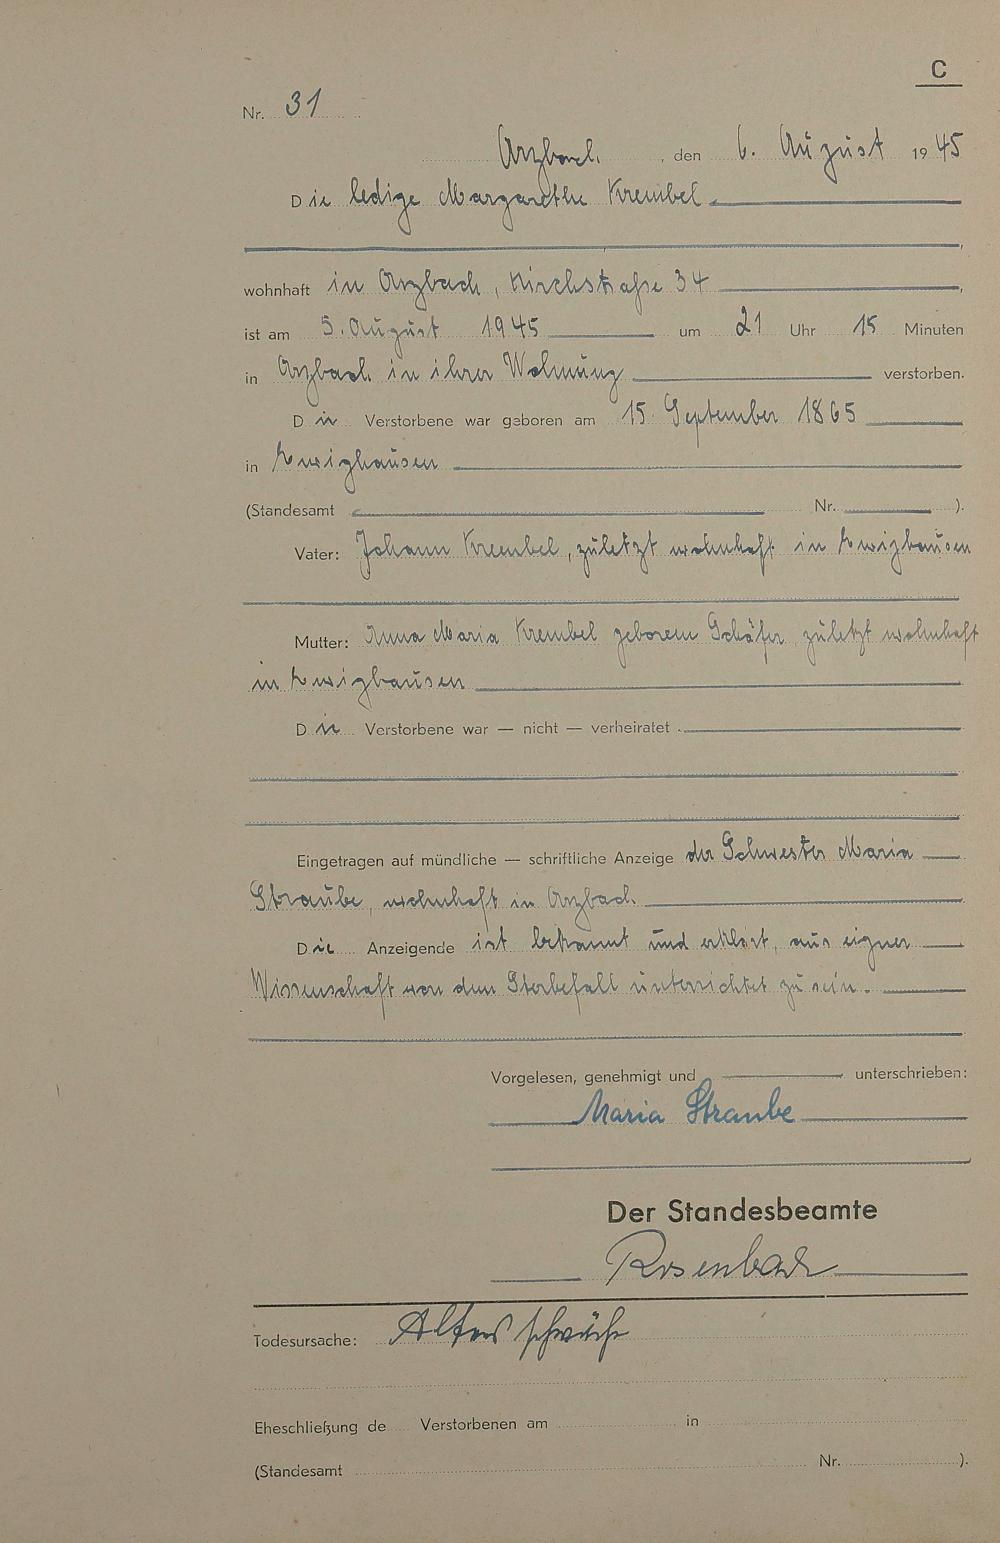 C
Nr. 31
Arzbach, den 6. August 1945
Die ledige Margarethe Krembel
wohnhaft in Arzbach, Kirchstraße 34
ist am 5. August 1945 um 21 Uhr 15 Minuten
in Arzbach in ihrer Wohnung verstorben.
Die Verstorbene war geboren am 15. September 1865
in
(Standesamt Nr. ).
Vater: Johann Krembel, zuletzt wohnhaft in
Mutter: Anna Maria Krembel geborene Schäfer, zuletzt wohnhaft
in
Die Verstorbene war — nicht — verheiratet
Eingetragen auf mündliche — schriftliche Anzeige der Schwester Maria
Straube, wohnhaft in Arzbach.
Die Anzeigende ist bekannt und erklärt, aus eigner
Wissenschaft von dem Sterbefall unterrichtet zu sein.
Vorgelesen, genehmigt und unterschrieben:
Maria Straube
Der Standesbeamte
Rosenbach
Todesursache: Altersschwäche
Eheschließung de Verstorbenen am in
(Standesamt Nr. ).